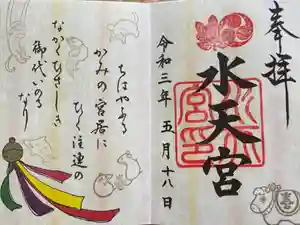 奉拝
水天宮
令和三年 五月十八日
ちはやふる
かみの宮居に
ひく注連の
なかくひさしき
御代いのる
なり